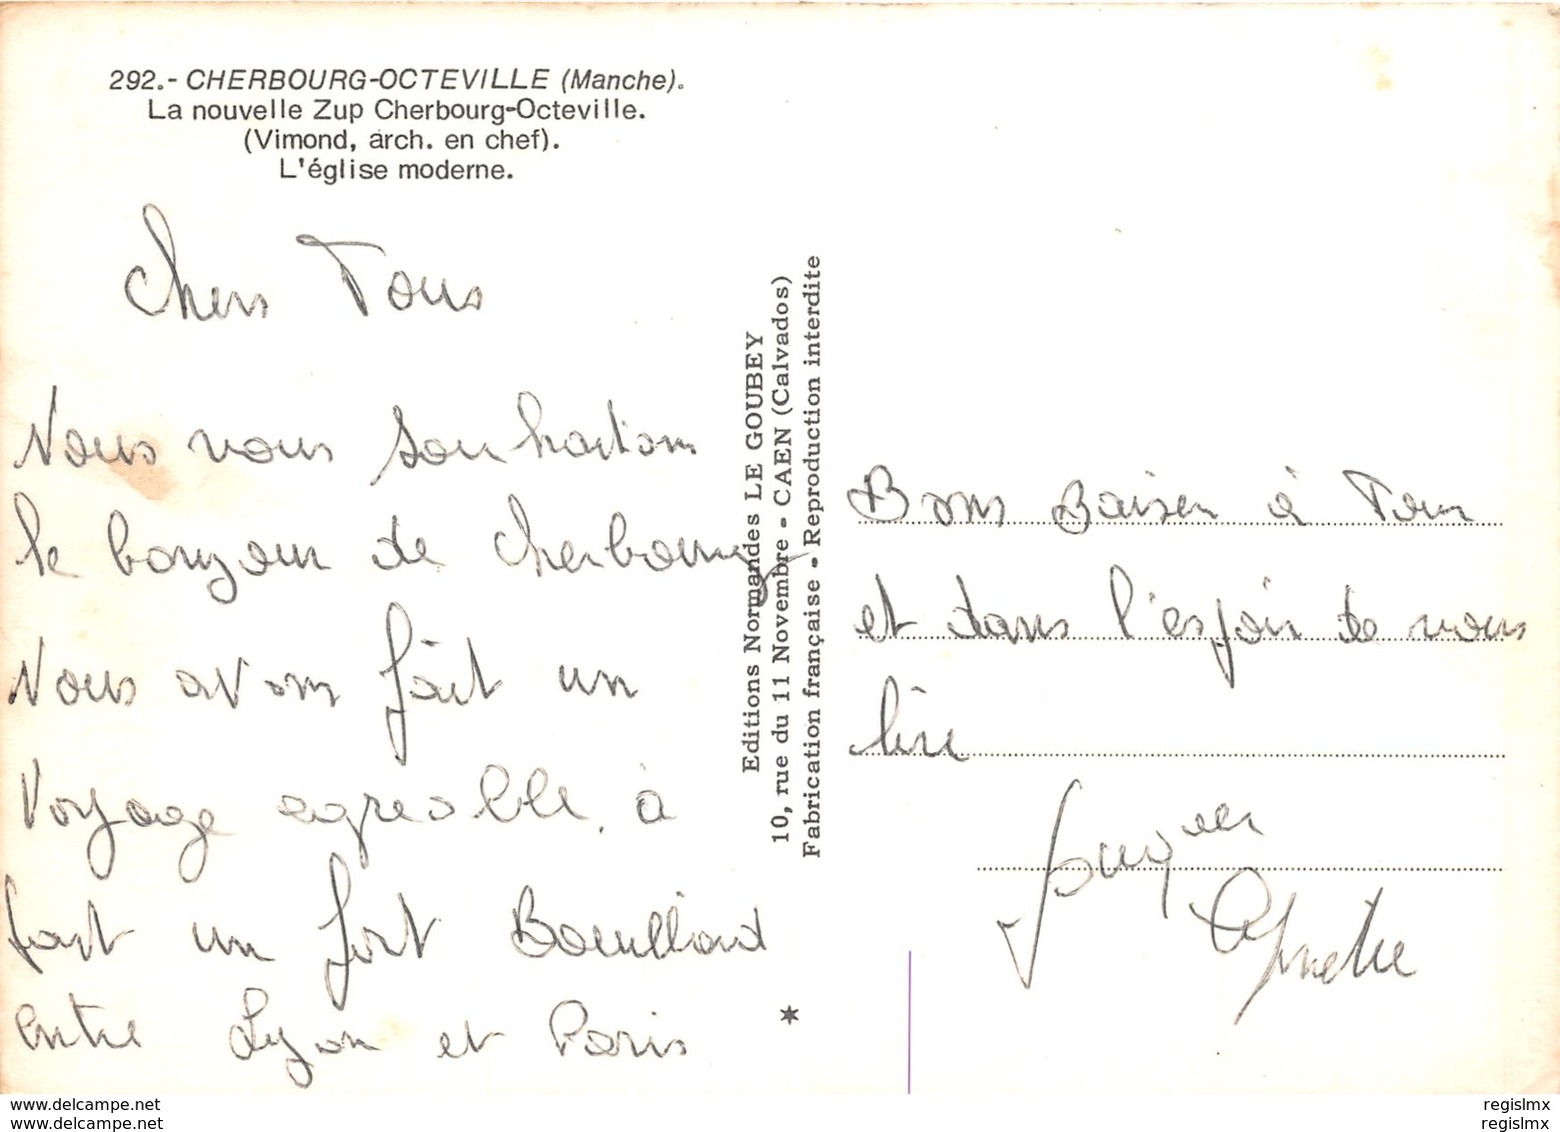 292.- CHERBOURG-OCTEVILLE (Manche).
La nouvelle Zup Cherbourg-Octeville.
(Vimond, arch. en chef).
L'église moderne.
Chers Tous
Nous vous souhaitons
le bonjour de Cherbourg
Nous avons fait un
Voyage agreable. à
part un fort Brouillard
entre Lyon et Paris
Editions Normandes LE GOUBEY
10, rue du 11 Novembre - CAEN (Calvados)
Fabrication française - Reproduction interdite
Bons Baisers à Tous
et dans l'espoir de vous
lire
Jacques
www.delcampe.net
www.delcampe.net
regislmx
regislmx